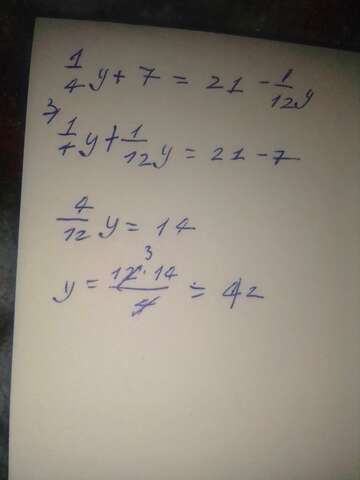 1/4 y + 7 = 21 - 1/12 y
3) 1/4 y + 1/12 y = 21 - 7
4/12 y = 14
y = 12 · 14 / 4 = 42
3